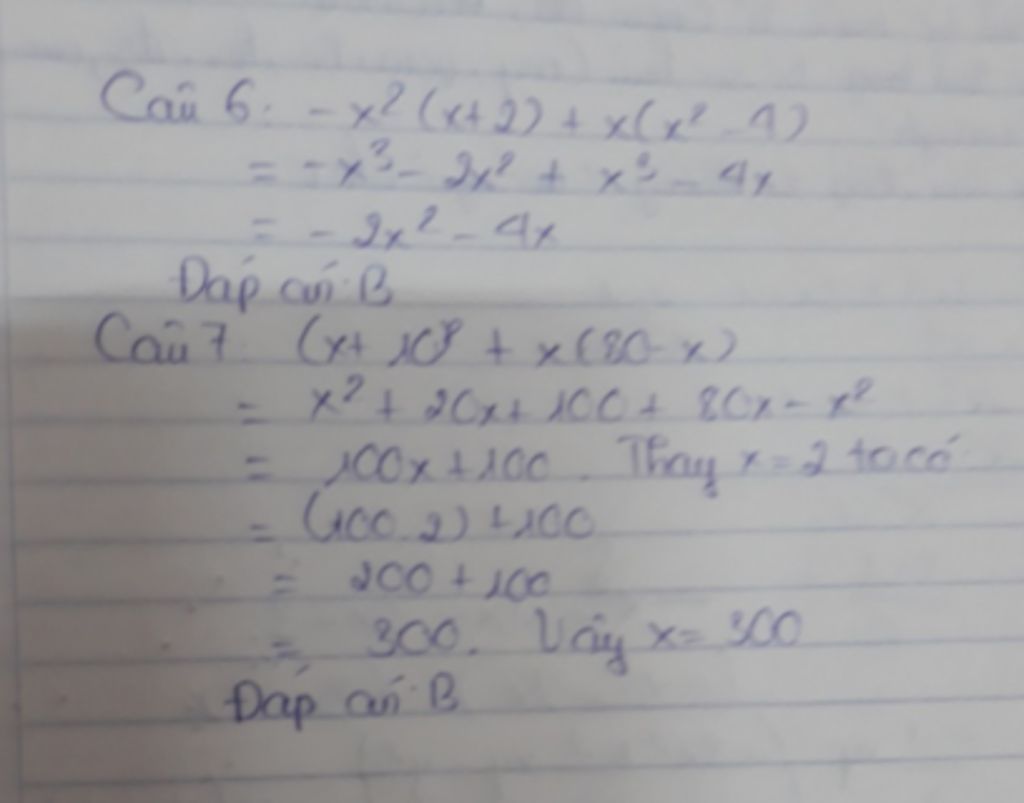 Câu 6: -x²(x+2) + x(x² - 4)
= -x³ - 2x² + x³ - 4x
= - 2x² - 4x
Đáp án: B
Câu 7: (x + 10)² + x(80 - x)
= x² + 20x + 100 + 80x - x²
= 100x + 100. Thay x = 2 ta có
= (100.2) + 100
= 200 + 100
= 300. Vậy x = 300
Đáp án: B